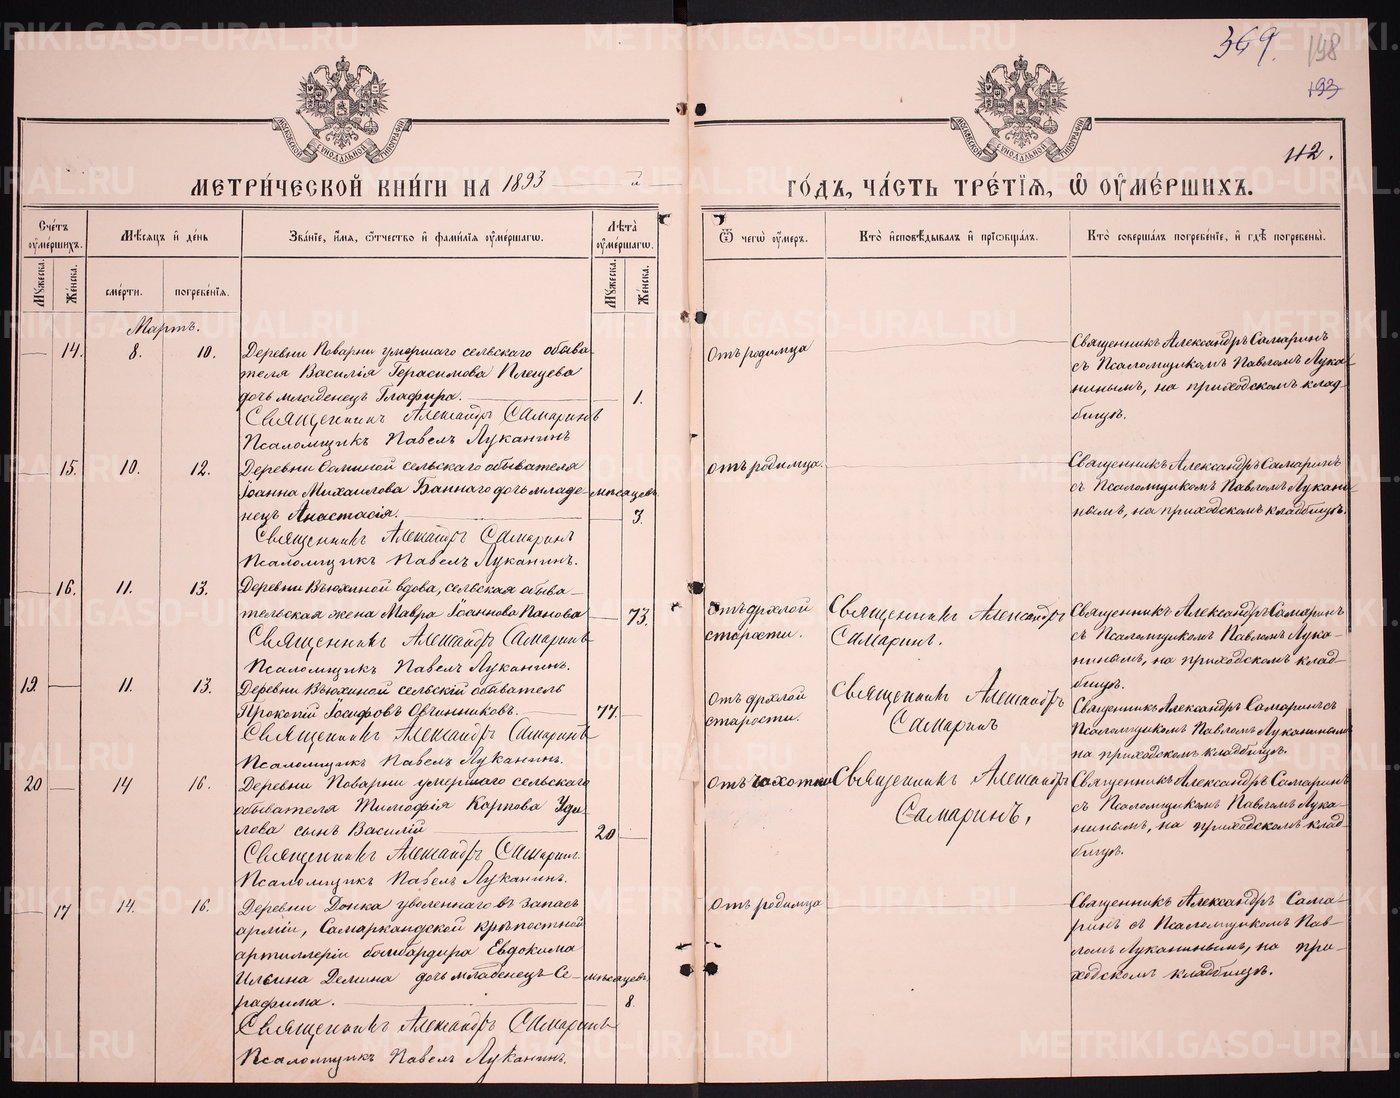 369.
198
193
112.
МОСКОВСКОЙ СѴНОДАЛЬНОЙ ТИПОГРАФІИ
МОСКОВСКОЙ СѴНОДАЛЬНОЙ ТИПОГРАФІИ
МЕТРИ́ЧЕСКОЙ КНИ́ГИ НА 1893 й
ГО́ДЪ, ЧА́СТЬ ТРЕ́ТЇѦ, Ѡ ОУ҆МЕ́РШИХЪ.
Сче́тъ оу҆ме́ршихъ.
Мѣ́сѧцъ и҆ де́нь
Зва́нїе, и҆́мѧ, ѻ҆́тчество и҆ фами́лїѧ оу҆ме́ршагѡ.
Лѣ́та̀ оу҆ме́ршагѡ.
Ѿ чегѡ̀ оу҆́меръ.
Кто̀ и҆сповѣ́дывалъ и҆ прїѡбща́лъ.
Кто̀ соверша́лъ погребе́нїе, и҆ гдѣ̀ погребены̀.
Мꙋ́жеска.
Же́нска.
сме́рти.
погребе́нїѧ.
Мꙋ́жеска.
Же́нска.
Мартъ.
14. 8. 10.
Деревни Поварни умершаго сельскаго обыва-
теля Василія Герасимова Плещева
дочь младенецъ Глафира. 1.
Священникъ Александръ Самаринъ
Псаломщикъ Павелъ Луканинъ
Отъ родимца
Священникъ Александръ Самаринъ
съ Псаломщикомъ Павломъ Лука-
нинымъ, на приходскомъ клад-
бищѣ.
15. 10. 12.
Деревни Соминой сельскаго обывателя
Іоанна Михаилова Баннаго дочь младе-
нецъ Анастасія. мѣсяцевъ 3.
Священникъ Александръ Самаринъ
Псаломщикъ Павелъ Луканинъ.
отъ родимца.
Священникъ Александръ Самаринъ
съ Псаломщикомъ Павломъ Лукани-
нымъ, на приходскомъ кладбищѣ.
16. 11. 13.
Деревни Вьюхиной вдова, сельская обыва-
тельская жена Мавра Іоаннова Панова 73.
Священникъ Александръ Самаринъ
Псаломщикъ Павелъ Луканинъ.
Отъ дрхлой
старости.
Священникъ Александръ
Самаринъ.
Священникъ Александръ Самаринъ
съ Псаломщикомъ Павломъ Лука-
нинымъ, на приходскомъ клад-
бищѣ.
19. 11. 13.
Деревни Вьюхиной сельскій обыватель
Прокопій Іосифовъ Овчинниковъ. 77.
Священникъ Александръ Самаринъ
Псаломщикъ Павелъ Луканинъ.
Отъ дрхлой
старости.
Священникъ Александръ
Самаринъ
Священникъ Александръ Самаринъ съ
Псаломщикомъ Павломъ Луканинымъ
на приходскомъ кладбищѣ.
20 14 16.
Деревни Поварни умершаго сельскаго
обывателя Тимофія Карпова Уди-
лова сынъ Василій 20
Священникъ Александръ Самаринъ.
Псаломщикъ Павелъ Луканинъ.
Отъ чахотки
Священникъ Александръ
Самаринъ,
Священникъ Александръ Самаринъ
съ Псаломщикомъ Павломъ Лука-
нинымъ, на приходскомъ клад-
бищѣ.
17 14. 16.
Деревни Донка уволеннаго въ запасъ
арміи, Самаркандской крѣпостной
артиллеріи бомбардира Евдокима
Ильина Демина дочь младенецъ Се-
рафима. мѣсяцевъ 8.
Священникъ Александръ Самаринъ
Псаломщикъ Павелъ Луканинъ.
Отъ родимца
Священникъ Александръ Сама-
ринъ съ Псаломщикомъ Пав-
ломъ Луканинымъ, на при-
ходскомъ кладбищѣ.
METRIKI.GASO-URAL.RU